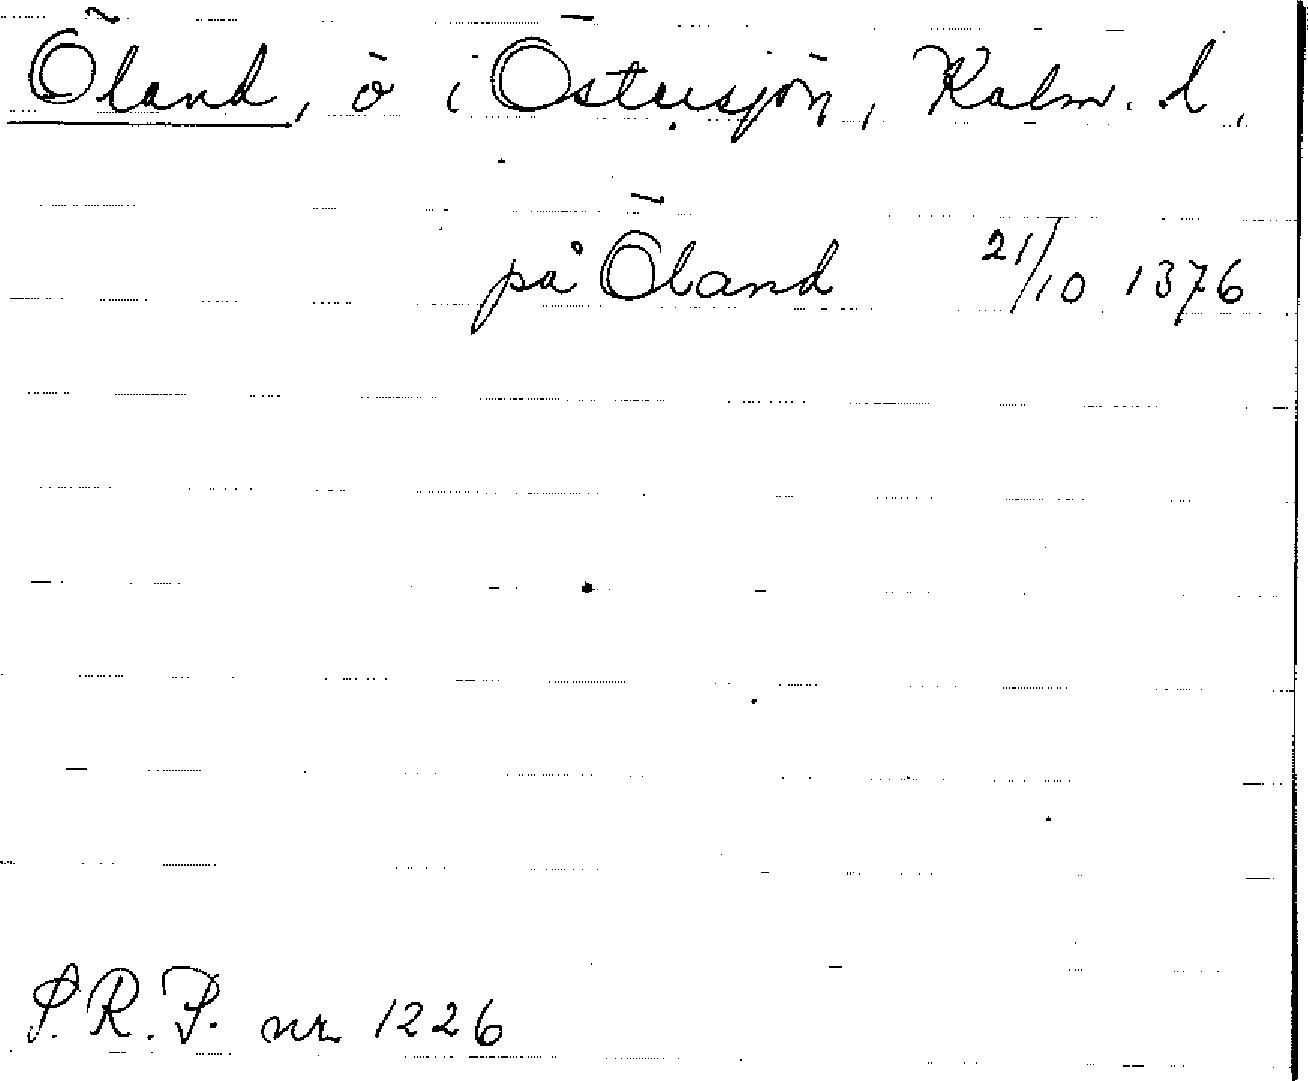 Öland, ö i Östersjön, Kalm. l.
på Öland 21/10 1376
S.R.P. nr 1226